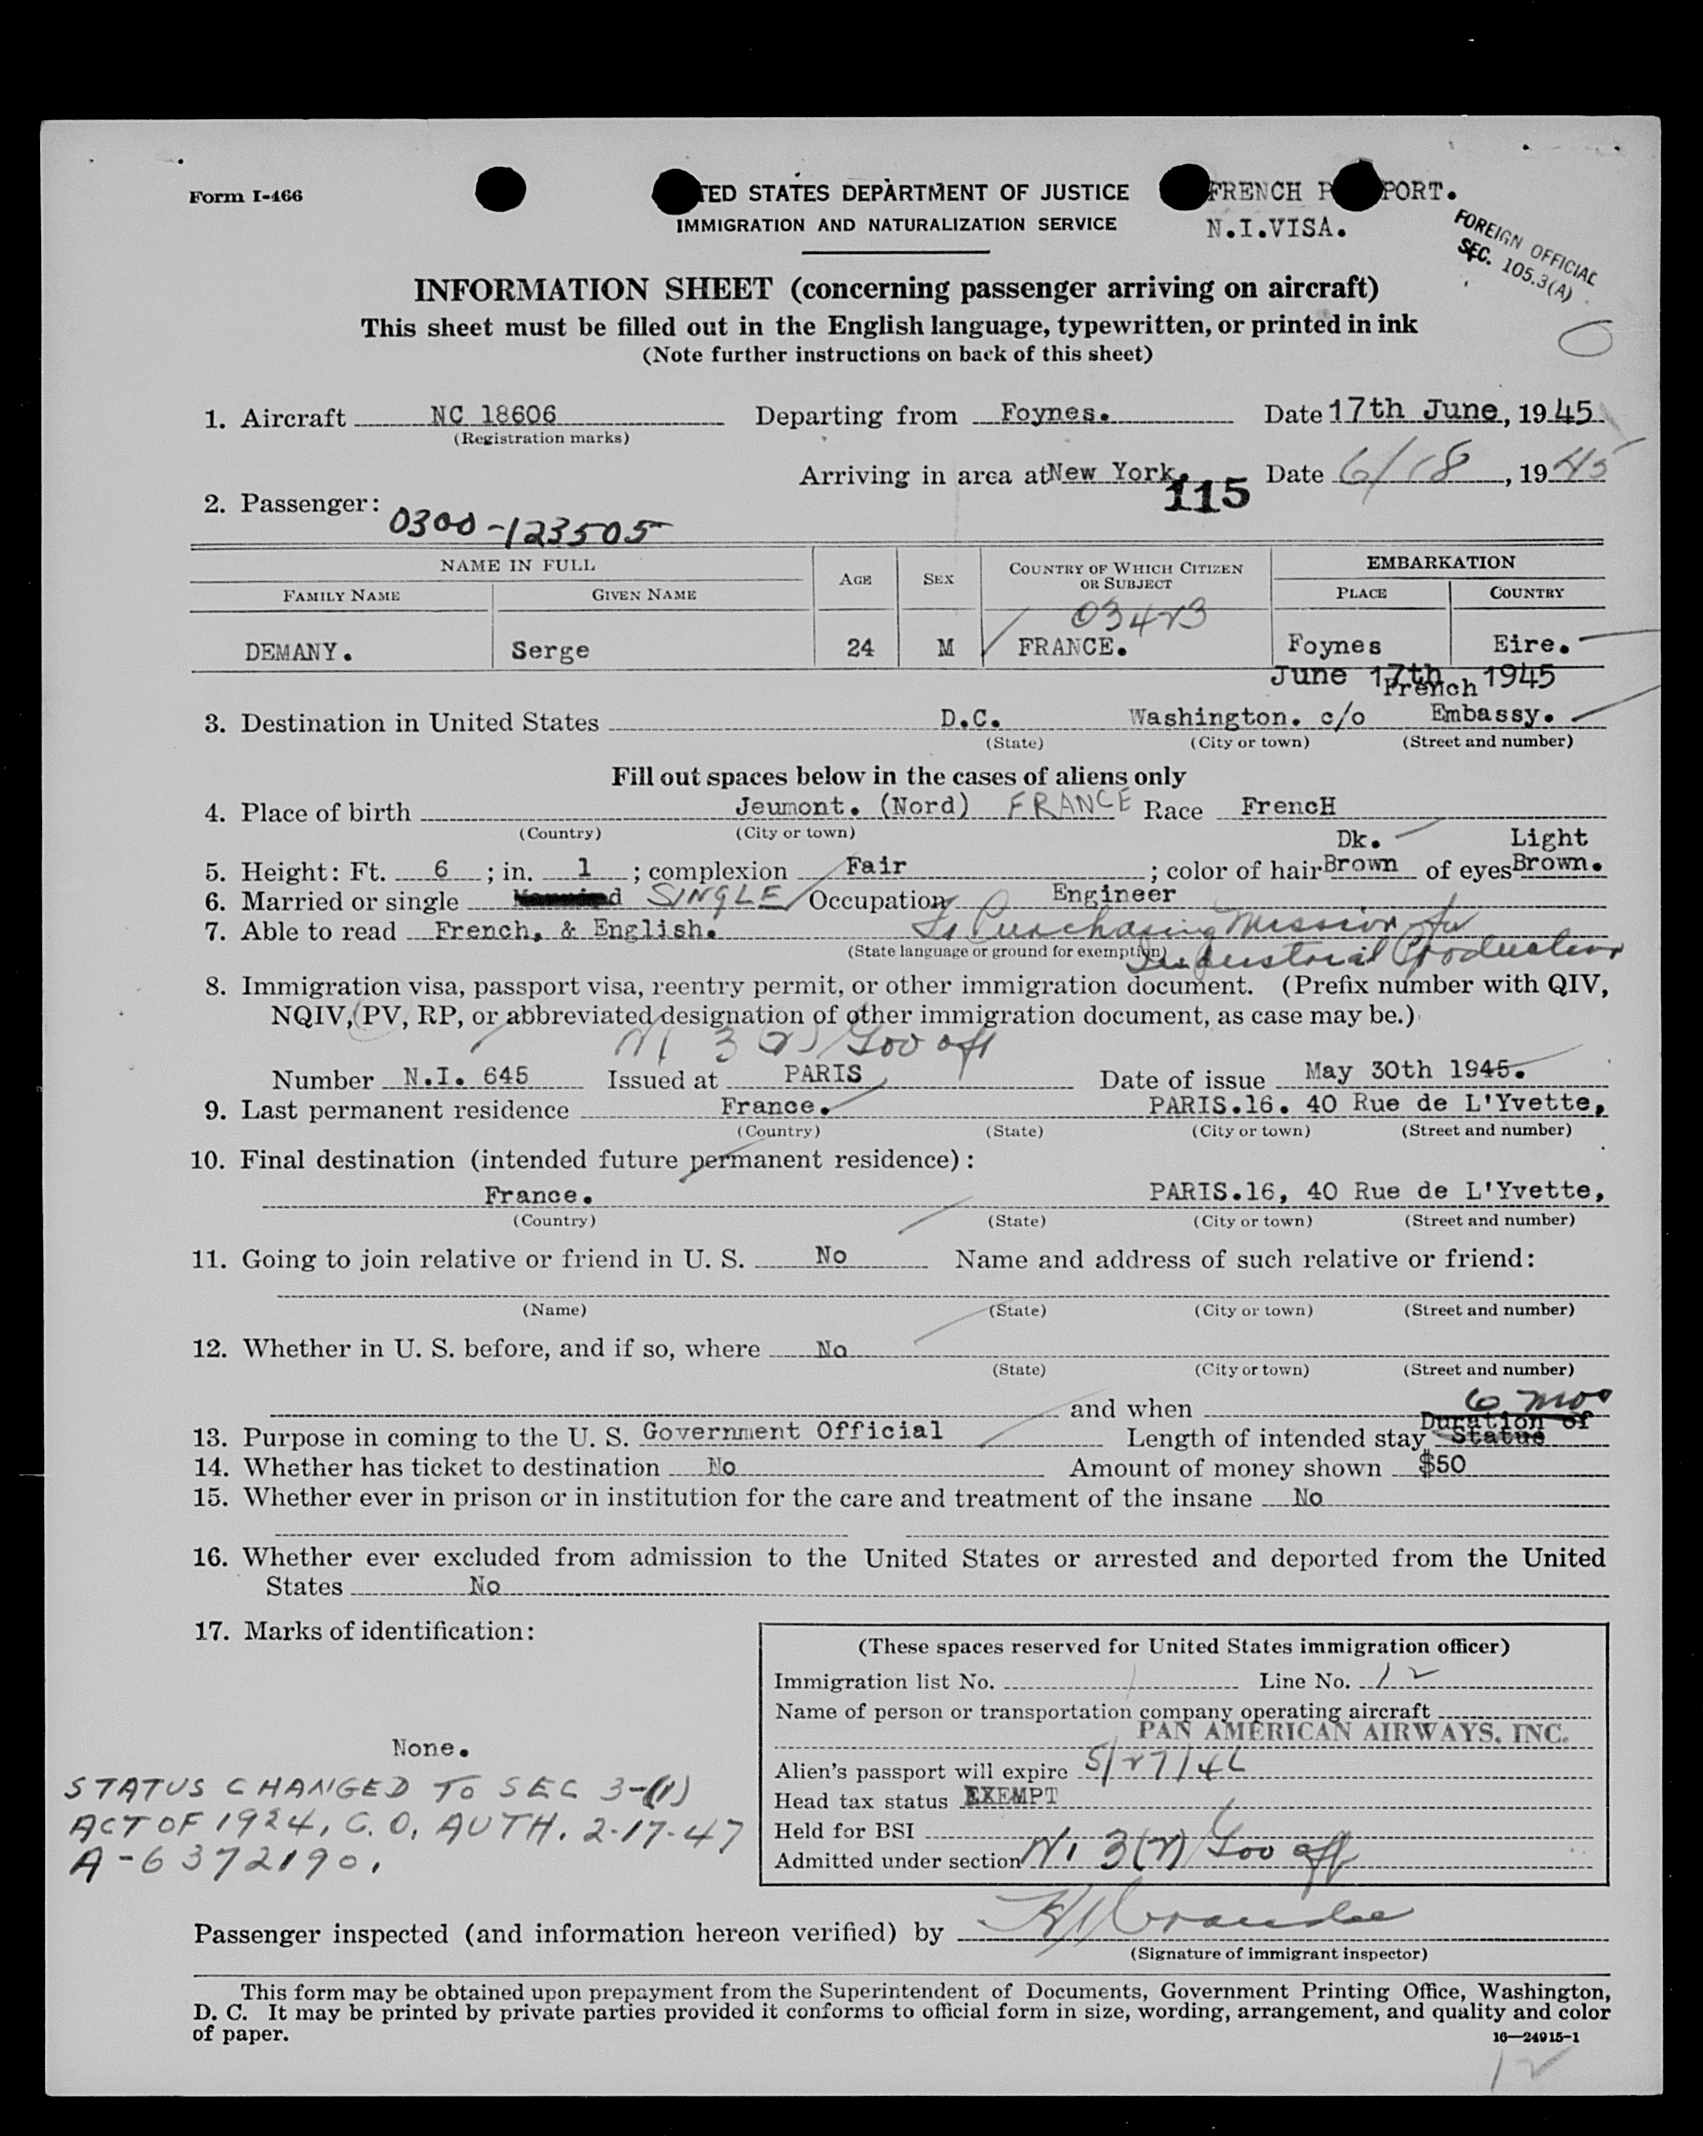 Form I-466
TED STATES DEPARTMENT OF JUSTICE
IMMIGRATION AND NATURALIZATION SERVICE
FRENCH P PORT.
N.I.VISA.
FOREIGN OFFICIAL
SEC. 105.3(A)
INFORMATION SHEET (concerning passenger arriving on aircraft)
This sheet must be filled out in the English language, typewritten, or printed in ink
(Note further instructions on back of this sheet)
1. Aircraft NC 18606 Departing from Foynes. Date 17th June, 1945
(Registration marks)
Arriving in area at New York. Date 6/18, 1945
115
2. Passenger: 0300-123505
NAME IN FULL AGE SEX COUNTRY OF WHICH CITIZEN OR SUBJECT EMBARKATION
FAMILY NAME GIVEN NAME PLACE COUNTRY
03423
DEMANY. Serge 24 M FRANCE. Foynes Eire.
June 17th 1945
French
3. Destination in United States D.C. Washington. c/o Embassy.
(State) (City or town) (Street and number)
Fill out spaces below in the cases of aliens only
4. Place of birth Jeumont. (Nord) FRANCE Race FrencH
(Country) (City or town)
Dk. Light
5. Height: Ft. 6; in. 1; complexion Fair; color of hair Brown of eyes Brown.
6. Married or single SINGLE Occupation Engineer
7. Able to read French, & English. Purchasing Mission for
(State language or ground for exemption) Industrial Production
8. Immigration visa, passport visa, reentry permit, or other immigration document. (Prefix number with QIV,
NQIV, PV, RP, or abbreviated designation of other immigration document, as case may be.)
NI 3(2) Gov off
Number N.I. 645 Issued at PARIS Date of issue May 30th 1945.
9. Last permanent residence France. PARIS.16. 40 Rue de L'Yvette,
(Country) (State) (City or town) (Street and number)
10. Final destination (intended future permanent residence):
France. PARIS.16, 40 Rue de L'Yvette,
(Country) (State) (City or town) (Street and number)
11. Going to join relative or friend in U. S. No Name and address of such relative or friend:
(Name) (State) (City or town) (Street and number)
12. Whether in U. S. before, and if so, where No
(State) (City or town) (Street and number)
and when
6 mos
Duration of
13. Purpose in coming to the U. S. Government Official Length of intended stay Status
14. Whether has ticket to destination No Amount of money shown $50
15. Whether ever in prison or in institution for the care and treatment of the insane No
16. Whether ever excluded from admission to the United States or arrested and deported from the United
States No
17. Marks of identification:
None.
STATUS CHANGED TO SEC 3-(1)
ACT OF 1924, C.O. AUTH. 2-17-47
A-6372190.
(These spaces reserved for United States immigration officer)
Immigration list No. Line No. 12
Name of person or transportation company operating aircraft
PAN AMERICAN AIRWAYS, INC.
Alien's passport will expire 5/27/46
Head tax status EXEMPT
Held for BSI
Admitted under section NI 3(2) Gov off
Passenger inspected (and information hereon verified) by
(Signature of immigrant inspector)
This form may be obtained upon prepayment from the Superintendent of Documents, Government Printing Office, Washington,
D. C. It may be printed by private parties provided it conforms to official form in size, wording, arrangement, and quality and color
of paper.
16—24915-1
12